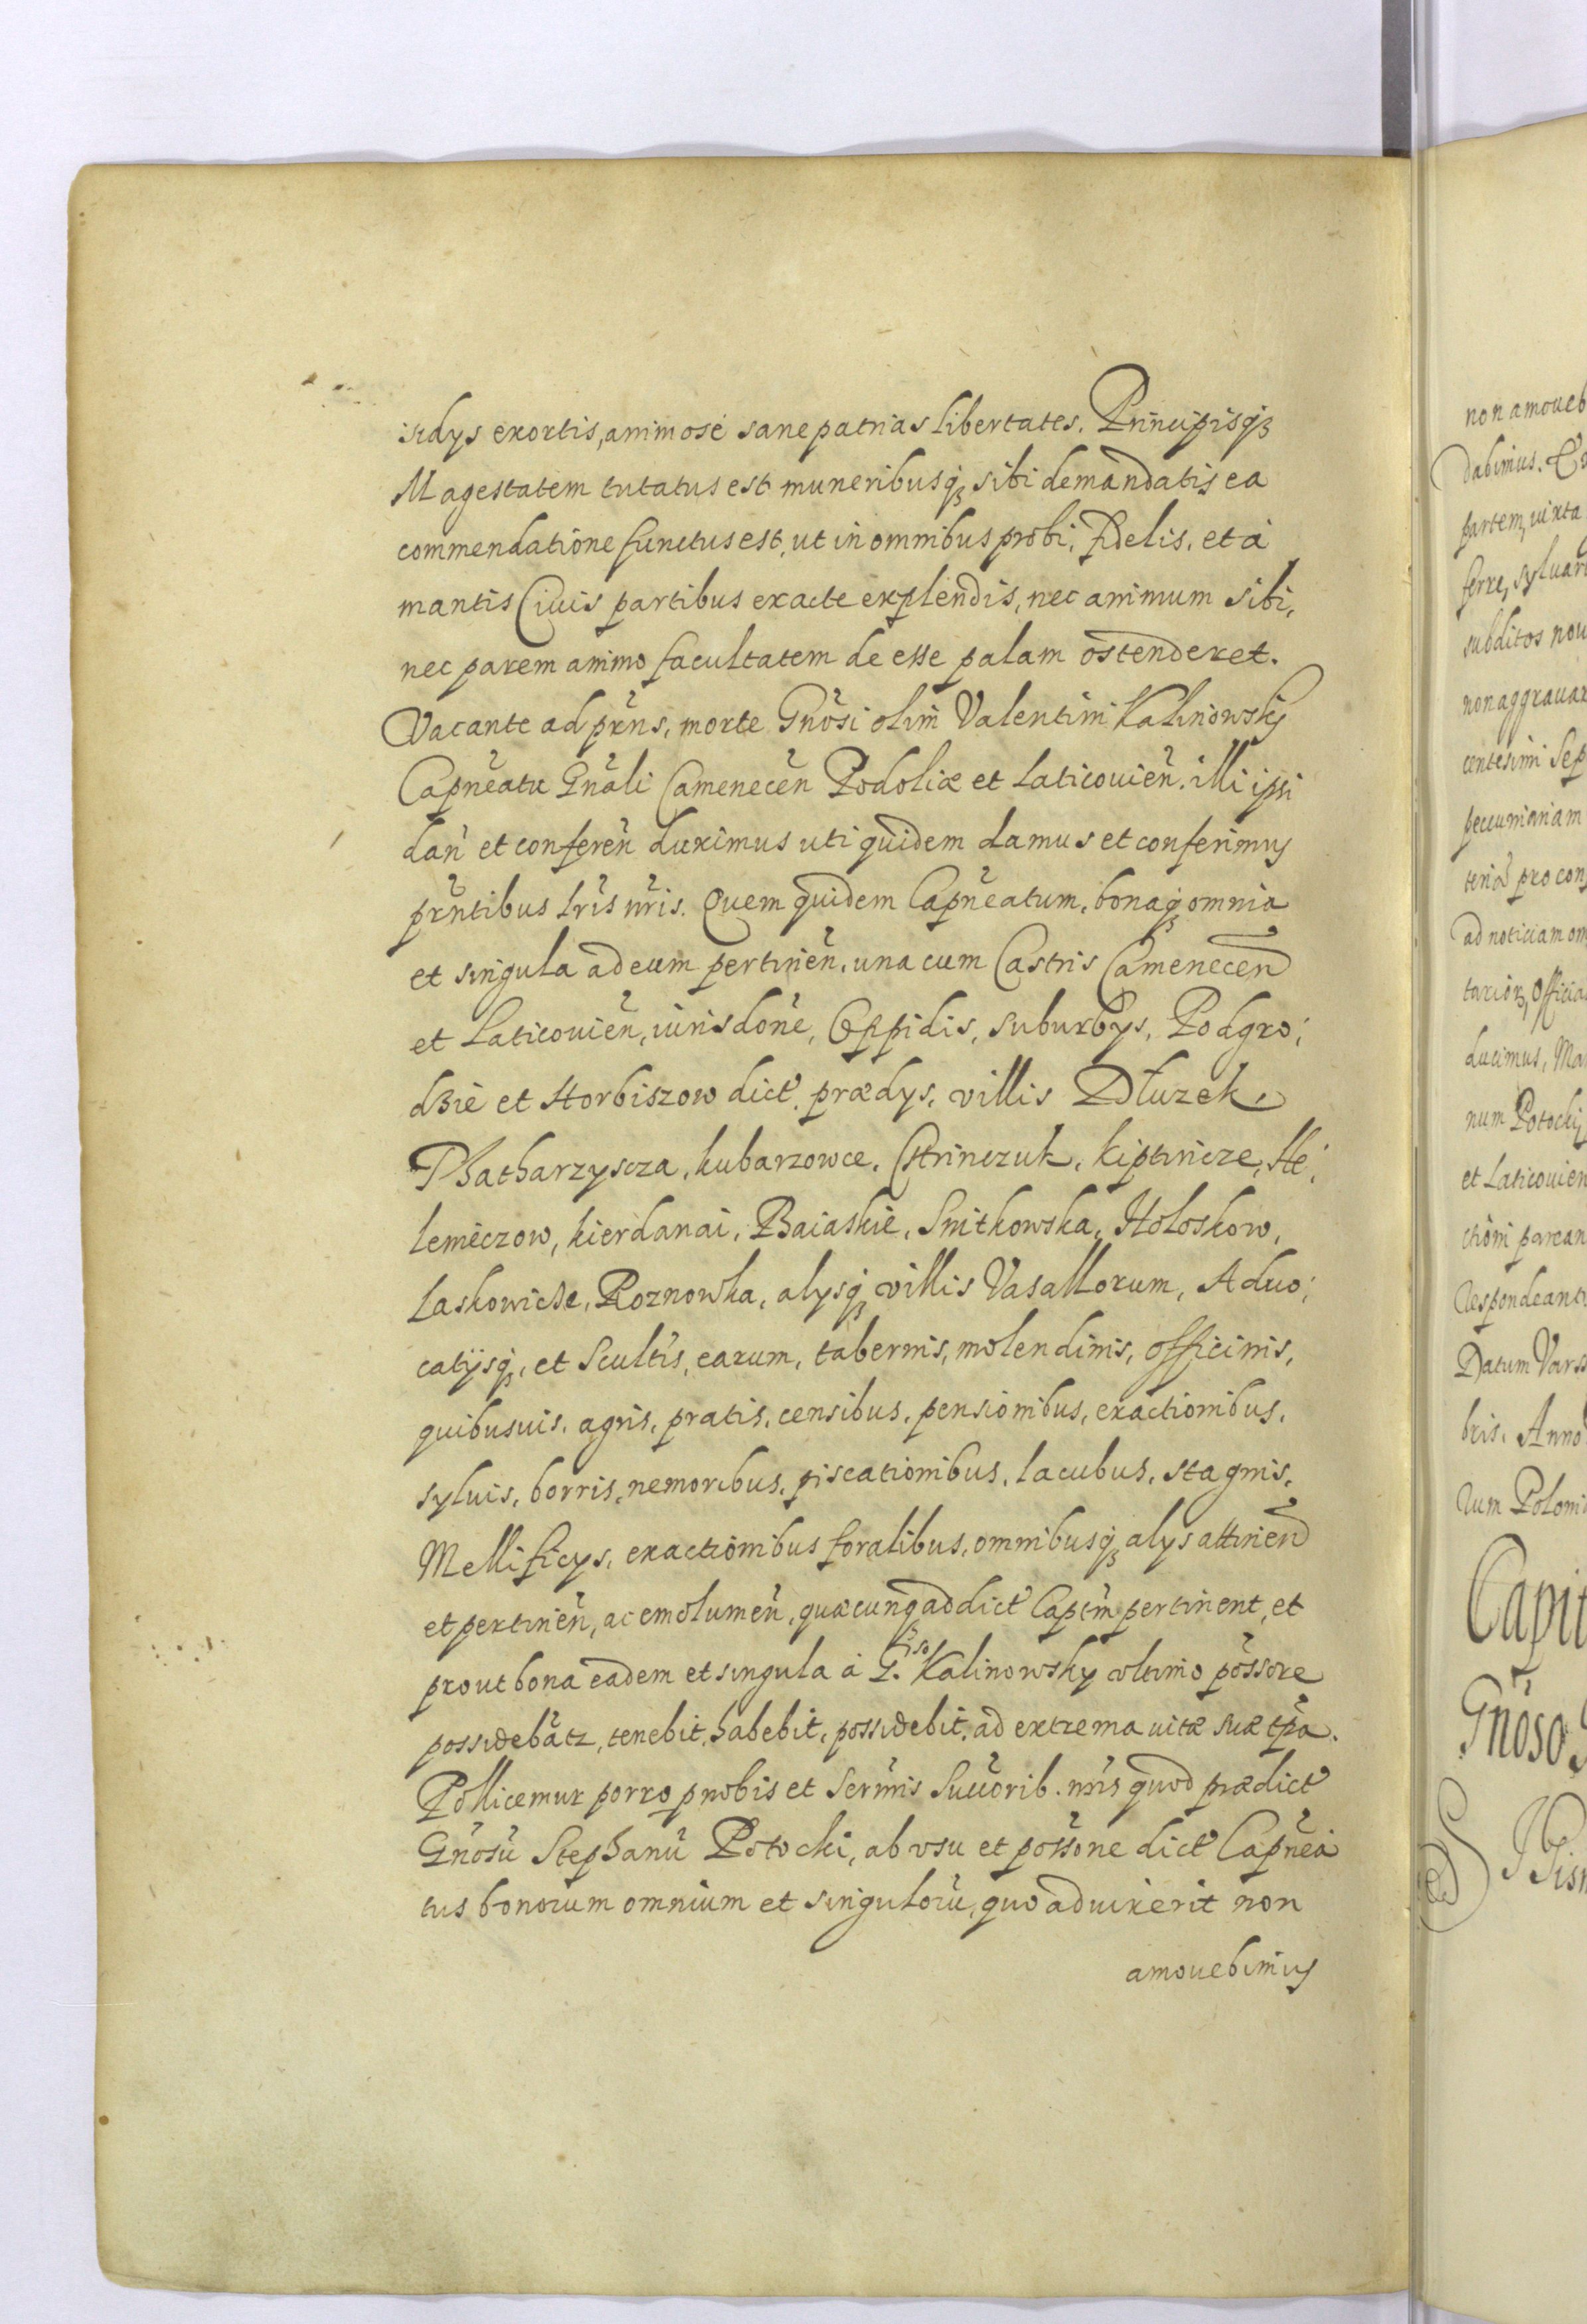 isdys exortis, animose sane patrias libertates. Principisq3
Magestatem tutatus est muneribusq3 sibi demandatis ea
commendatione functus est, ut in omnibus probi, fidelis, et a
mantis Ciuis partibus exacte explendis, nec animum sibi,
nec parem animo facultatem de esse palam ostenderet.
Vacante ad prns, morte Gnosi olim Valentini Kalinowsky
Capneatu Gnali Camenecen Podoliæ et Laticouien. illi ipsi
dan et conferen duximus uti quidem damus et conferimus
prntibus lris nris. Quem quidem Capneatum, bonaq3 omnia
et singula ad eum pertinen, una cum Castris Camenecen
et Laticouien, iurisdone, Oppidis, suburbys, Podgro;
dzie et Horbiszow dict. prædys, villis Dłuzek,
Thatharzyscza, kubarzowce, Ostrinczuk, kiptincze, He;
lemeczow, kierdanai, Baiaskie, Snitkowska, Hołoskow,
Laskowicze, Roznowka, alysq3 villis Vasallorum, Aduo;
catijsq3, et Scultis, earum, tabernis, molendinis, officinis,
quibusuis, agris, pratis, censibus, pensionibus, exactionibus,
syluis, borris, nemoribus, piscationibus, lacubus, stagnis,
Mellificys, exactionibus foralibus, omnibusq3 alys attinen
et pertinen, ac emolumen, quæcunq3 ad dict Captm pertinent, et
prout bona eadem et singula à G.so Kalinowsky vltimo possore
possidebatz, tenebit, habebit, possidebit, ad extrema uitæ suæ tpa.
Pollicemur porro p nobis et Sermis Succorib. nris quod prædict
Gnosu Stephanu Potocki, ab vsu et possone dict Capnea
tus bonorum omnium et singuloru, quo aduixerit non
amouebimus
non amoueb
dabimus.
partem, iuxta
ferre, syluar
subditos nou
non aggrauar
centesimi Sep
pecuniariam
pro con
ad noticiam om
ducimus, Ma
num Potocky
et Laticouien
ctioni parean
Respondeant
Datum Vars
bris. Anno
Poloni
Capit
Gnoso